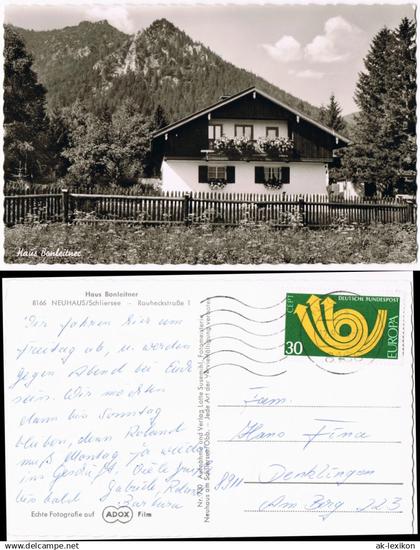 Haus Bonleitner
Haus Bonleitner
8166 NEUHAUS/Schliersee - Rauheckstraße 1
Wir fahren hier am
Freitag ab, u. werden
gegen Abend bei Euch
sein. Wir möchten
dann bis Sonntag
bleiben, denn Roland
muß Montag ja wieder
ins Geschäft. Viele Grüße
bis bald Gabriele, Roland
Barbara
Echte Fotografie auf ADOX Film
Neuhaus am Schliersee/Obb. - Jede Art der Vervielfältigung verboten
CEPT
DEUTSCHE BUNDESPOST
30
EUROPA
Fam.
Hans Finc
8911 Denklingen
Am Berg 223
ak-lexikon.com